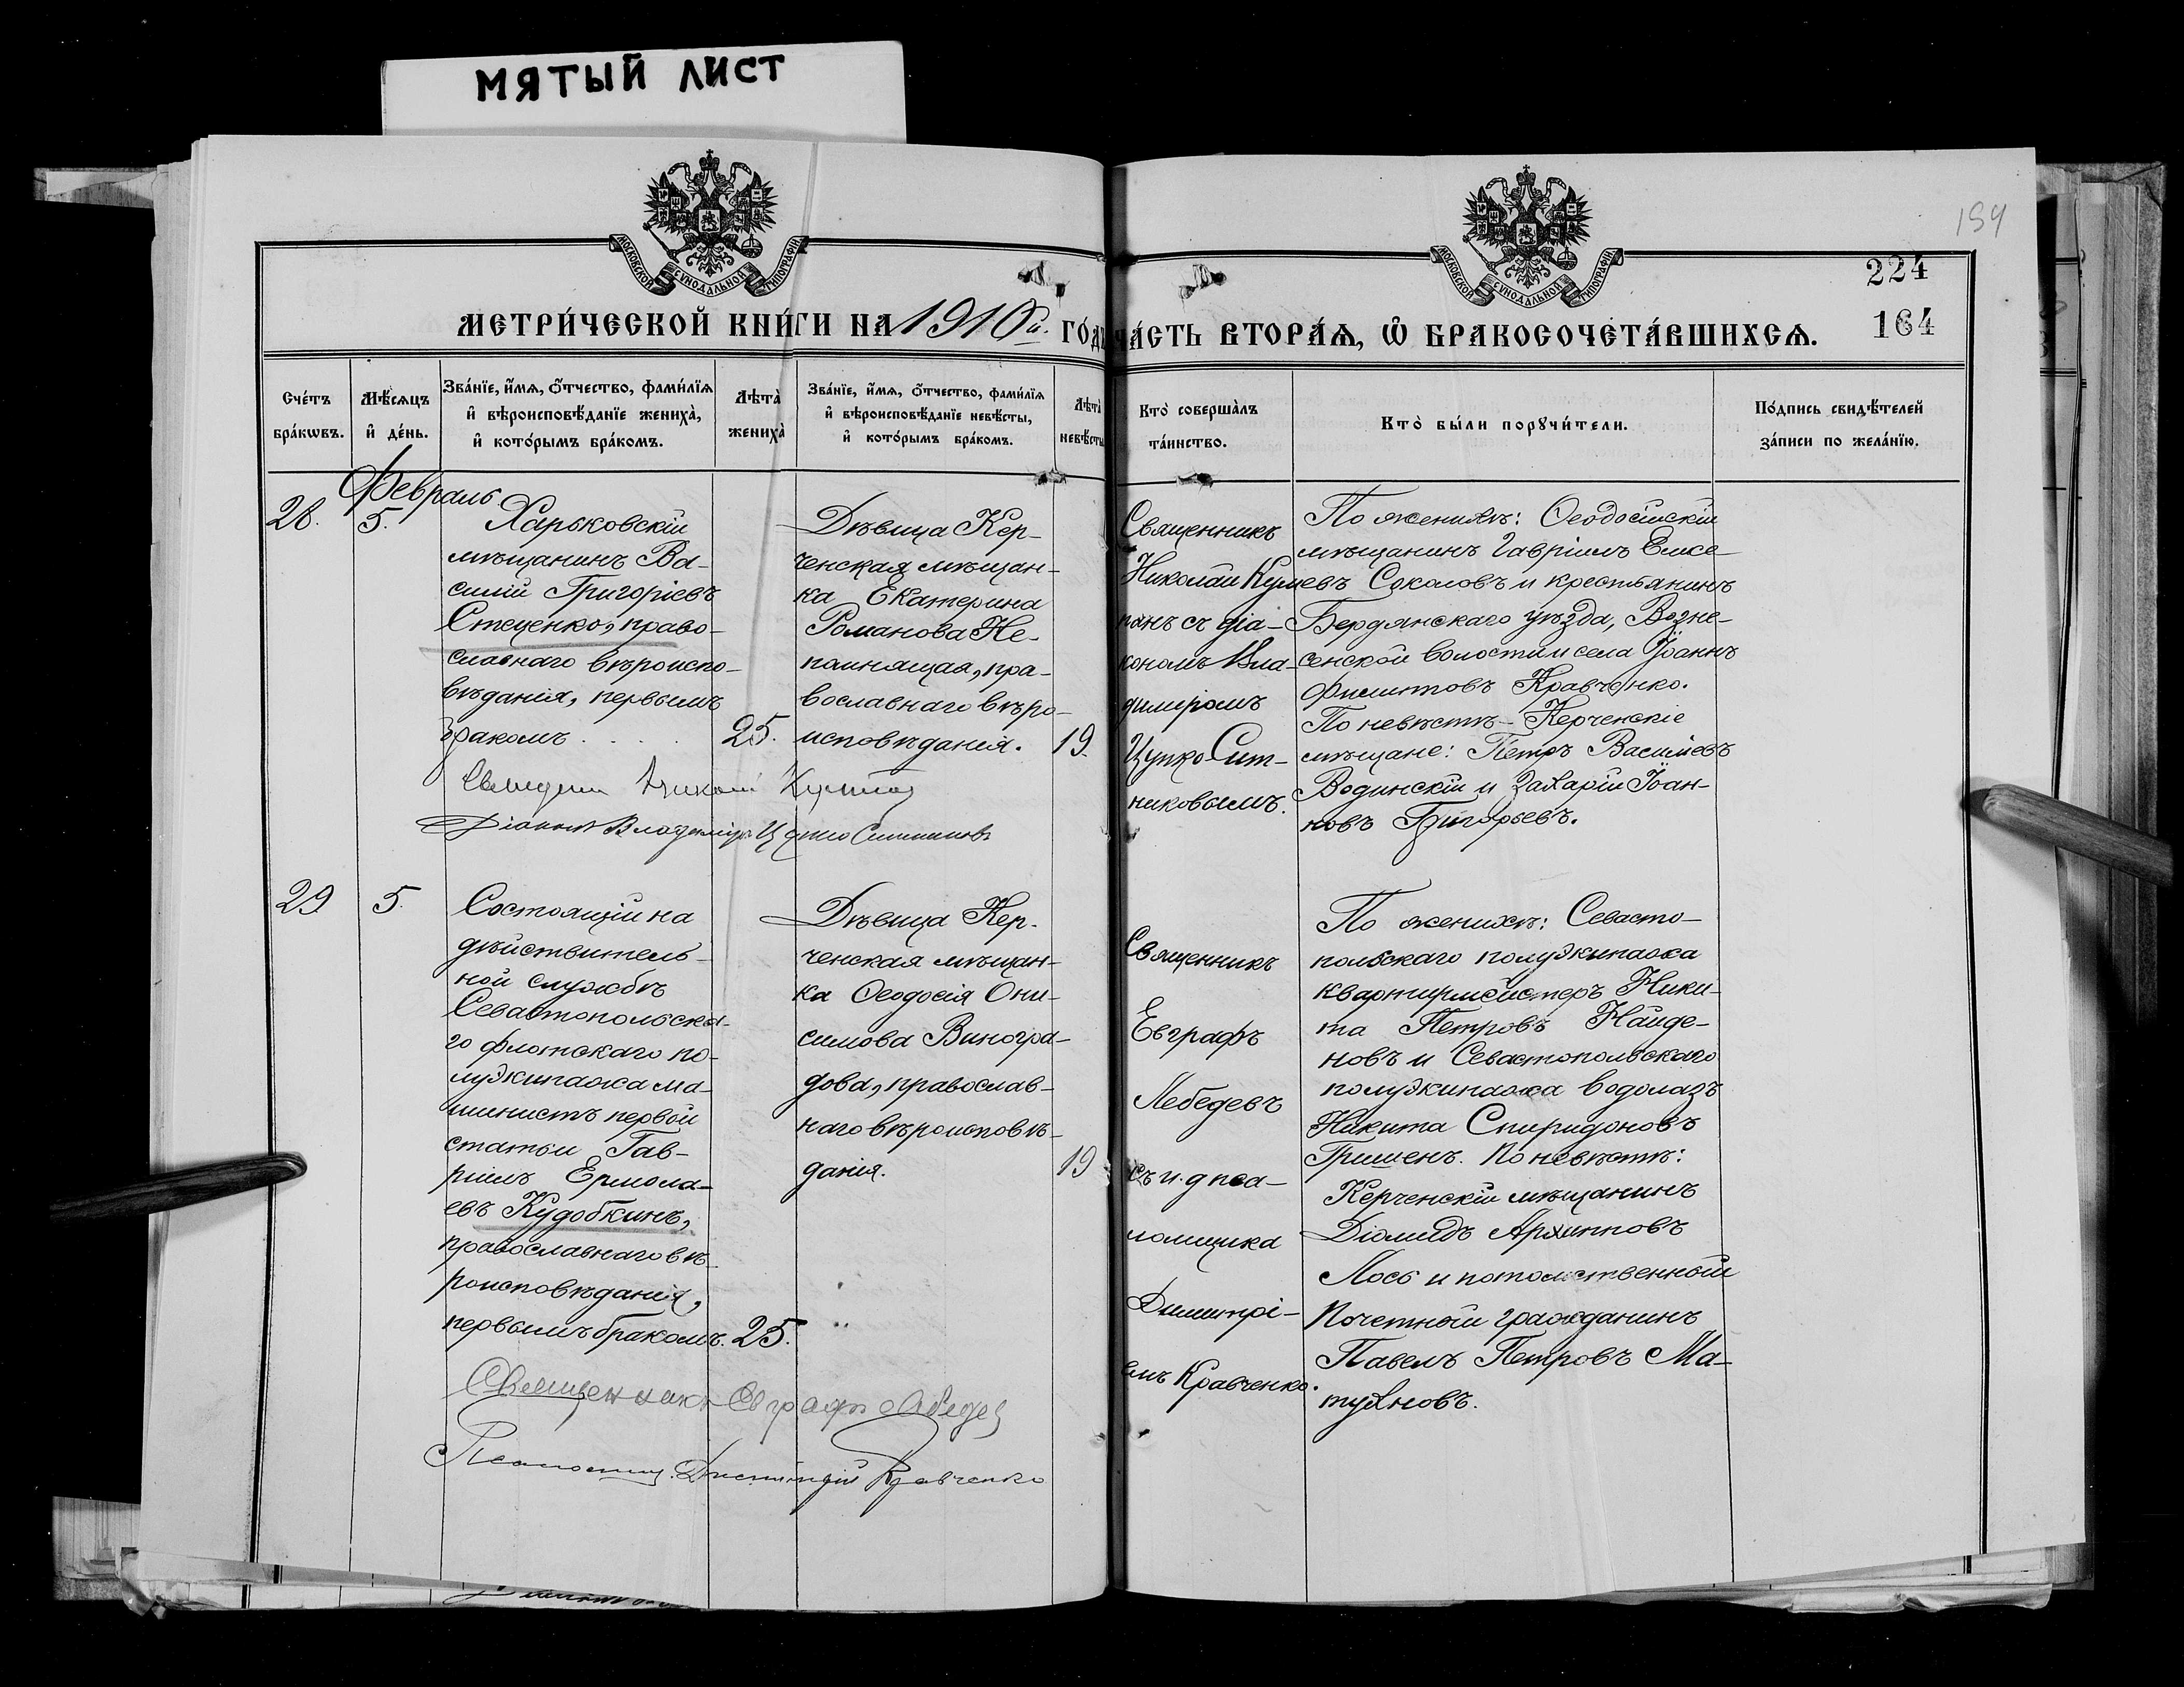 МЯТЫЙ ЛИСТ
194
МОСКОВСКОЙ СѴНОДАЛЬНОЙ ТИПОГРАФІИ
МОСКОВСКОЙ СѴНОДАЛЬНОЙ ТИПОГРАФІИ
224
МЕТРИ́ЧЕСКОЙ КНИ́ГИ НА 1910й. ГО́ДЪ
ЧА́СТЬ ВТОРА́Ѧ, Ѽ БРАКОСОЧЕТА́ВШИХСѦ.
164
Сче́тъ бра́кѡвъ.
Мѣ́сѧцъ и҆ де́нь.
Зва́нїе, и҆́мѧ, ѻ҆́тчество, фами́лїѧ
и҆ вѣроисповѣ́данїе жениха̀,
и҆ кото́рымъ бра́комъ.
Лѣта̀ жениха̀
Зва́нїе, и҆́мѧ, ѻ҆́тчество, фами́лїѧ
и҆ вѣроисповѣ́данїе невѣ́сты,
и҆ кото́рымъ бра́комъ.
Лѣта̀ невѣ́сты
Кто̀ соверша̀лъ
та́инство.
Кто̀ бы́ли порꙋчи́тели.
По́дпись свидѣ́телей
за́писи по жела́нїю.
Февраль
28.
5.
Харьковскій
мѣщанинъ Ва-
силій Григоріевъ
Стеценко, право-
славнаго вѣроиспо-
вѣданія, первымъ
бракомъ . . . .
25.
Дѣвица Кер-
ченская мѣщан-
ка Екатерина
Романова Не-
помнящая, пра-
вославнаго вѣро-
исповѣданія.
19.
Священникъ
Николай
панъ съ діа-
кономъ Вла-
диміромъ
Цупко-Сит-
никовымъ.
По женихѣ: Ѳеодосійскій
мѣщанинъ Гавріилъ Елисе-
евъ Соколовъ и крестьянинъ
Бердянскаго уѣзда, Возне-
сенской волости и села Іоаннъ
Филиповъ Кравченко.
По невѣстѣ - Керченскіе
мѣщане: Петръ Васильевъ
Водинскій и Захарій Іоан-
новъ Григорьевъ.
Священникъ Николай
Діаконъ Владиміръ Цупко Ситниковъ
29
5.
Состоящій на
дѣйствитель-
ной службѣ
Севастопольска-
го флотскаго по-
луэкипажа ма-
шинистъ первой
статьи Гав-
ріилъ Ермола-
евъ Кудобкинъ,
православнаго вѣ-
роисповѣданія,
первымъ бракомъ.
25.
Дѣвица Кер-
ченская мѣщан-
ка Ѳеодосія Они-
симова Виногра-
дова, православ-
наго вѣроисповѣ-
данія.
19
Священникъ
Евграфъ
Лебедевъ
съ и.д пса-
ломщика
Димитрі-
емъ Кравченко.
По женихѣ: Севасто-
польскаго полуэкипажа
квартирмейстеръ Ники-
та Петровъ Найде-
новъ и Севастопольскаго
полуэкипажа водолазъ
Никита Спиридоновъ
Гришенъ. По невѣстѣ:
Керченскій мѣщанинъ
Діомидъ Архиповъ
Лось и потомственный
Почетный гражданинъ
Павелъ Петровъ Ма-
тухновъ.
Священникъ Евграфъ Лебедев
Псаломщ. Димитрій Кравченко